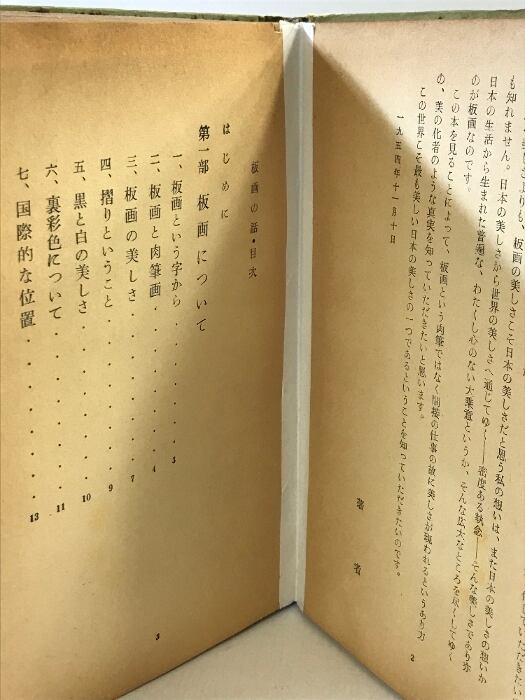 も知れません。日本の美しさから世界の美しさへ通じてゆく――密度ある執念――そんな美しさであり弥
日本の生活から生まれた普遍な、わたくし心のない大乗意というか、そんな広大なところを尽くしてゆく
のが板画なのです。
この本を見ることによって、板画という肉筆ではなく間接の仕事の故に美しさが現われるというあり方
の、美の化者のような真実を知っていただきたいと思います。
この世界こそ最も美しい日本の美しさの一つであるということを知っていただきたいのです。
一九五四年十一月十日
著者
2
板画の話・目次
はじめに
第一部 板画について
一、板画という字から 3
二、板画と肉筆画 4
三、板画の美しさ 7
四、摺りということ 9
五、黒と白の美しさ 10
六、裏彩色について 11
七、国際的な位置 13
3